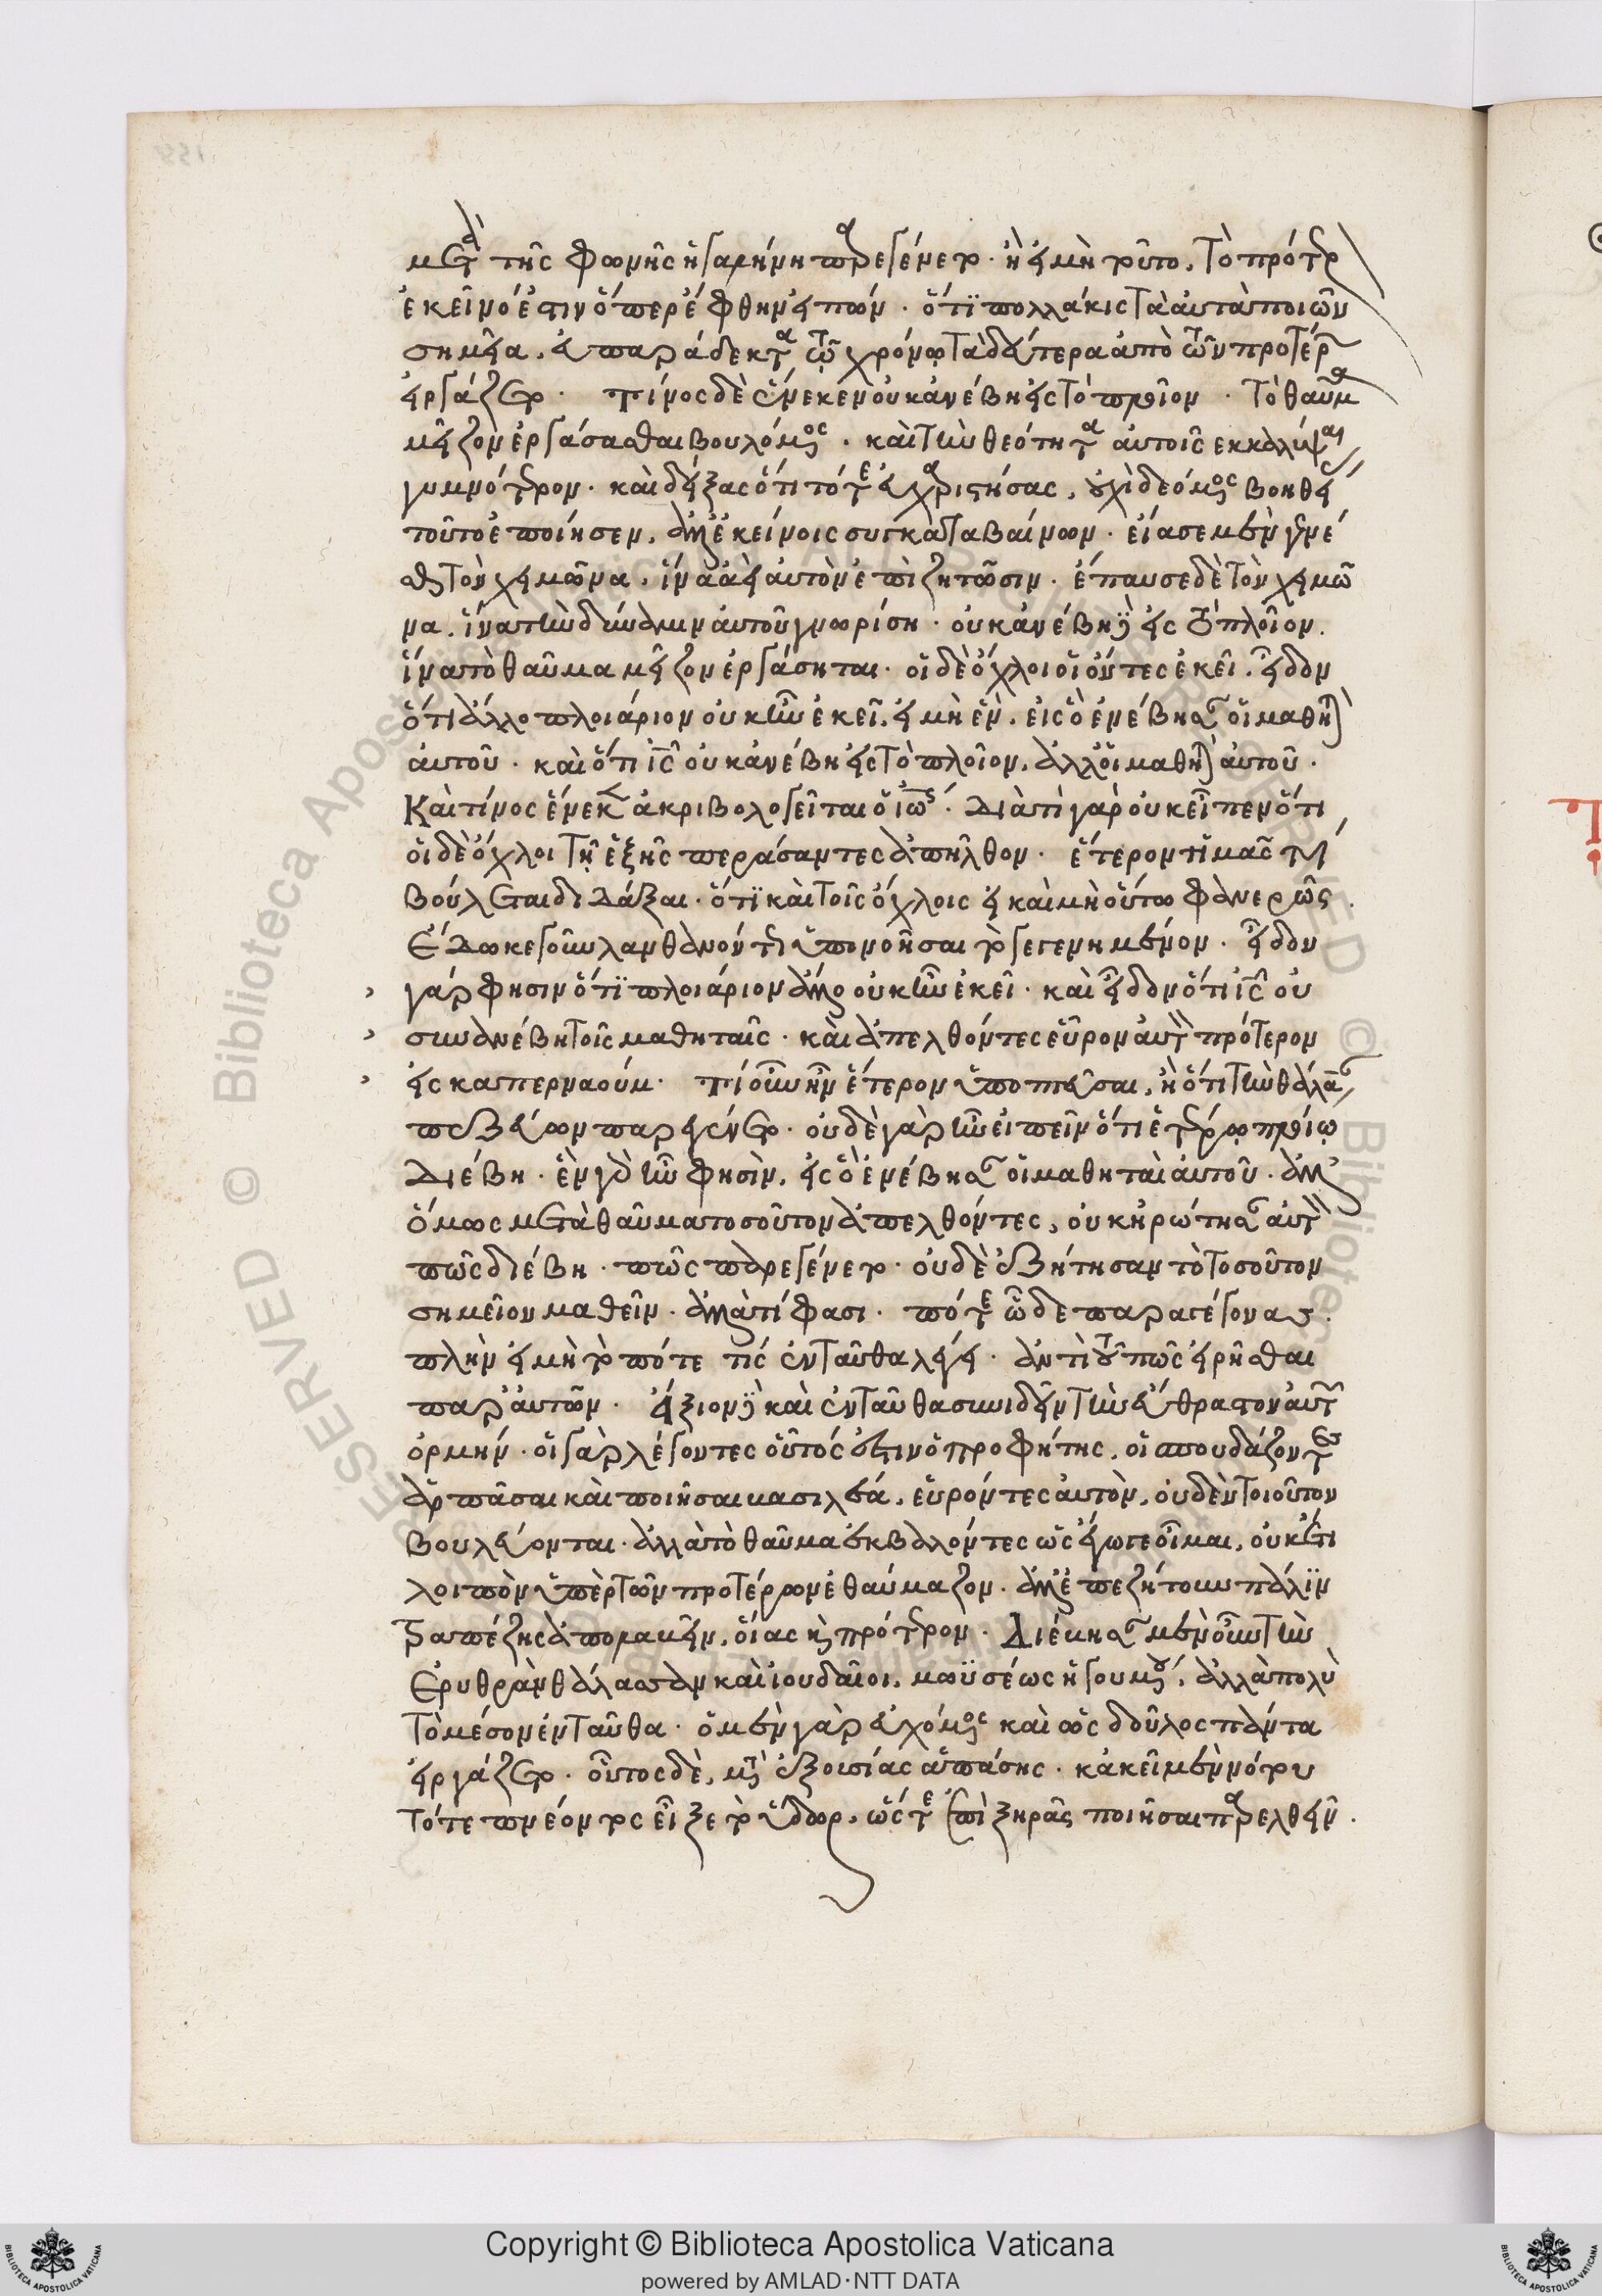 μετὰ τῆς φωνῆς ἡ γαλήνη παρεγένετο. ἢ εἰ μὴ τοῦτο, τὸ πρότερον
ἐκεῖνό ἐστιν ὅπερ ἔφθην εἰπών. ὅτι πολλάκις τὰ αὐτὰ ποιῶν
σημεῖα, εὐπαράδεκτα τῷ χρόνῳ τὰ δεύτερα ἀπὸ τῶν προτέρων
εἰργάζετο. τίνος δὲ ἕνεκεν οὐκ ἀνέβη εἰς τὸ πλοῖον. τὸ θαῦμα
μεῖζον ἐργάσασθαι βουλόμενος. καὶ τὴν θεότητα αὐτοῖς ἐκκαλύψαι
γυμνότερον. καὶ δείξας ὅτι τότε εὐχαριστήσας, οὐχὶ δεόμενος βοηθείας
τοῦτο ἐποίησεν, ἀλλ' ἐκείνοις συγκαταβαίνων. εἴασε μὲν γενέ
σθαι τὸν χειμῶνα, ἵνα ἀεὶ αὐτὸν ἐπιζητῶσιν. ἔπαυσε δὲ τὸν χειμῶ
να, ἵνα τὴν δύναμιν αὐτοῦ γνωρίση. οὐκ ἀνέβη δὲ εἰς τὸ πλοῖον.
ἵνα τὸ θαῦμα μεῖζον ἐργάσηται. οἱ δὲ ὄχλοι οἱ ὄντες ἐκεῖ, εἶδον
ὅτι ἄλλο πλοιάριον οὐκ ἦν ἐκεῖ, εἰ μὴ ἕν, εἰς ὃ ἐνέβησαν οἱ μαθηταὶ
αὐτοῦ. καὶ ὅτι ἰς οὐκ ἀνέβη εἰς τὸ πλοῖον, ἀλλ' οἱ μαθηταὶ αὐτοῦ.
Καὶ τίνος ἕνεκεν ἀκριβολογεῖται ὁ ἰωάννης. Διατί γὰρ οὐκ εἶπεν ὅτι
οἱ δὲ ὄχλοι τῇ ἑξῆς περάσαντες ἀπῆλθον. ἕτερον ἡμᾶς τι
βούλεται διδάξαι. ὅτι καὶ τοῖς ὄχλοις εἰ καὶ μὴ οὕτω φανερῶς.
Ἔδωκε γοῦν λανθανόντως ὑπονοῆσαι τὸ γεγενημένον. εἶδον
γάρ φησιν ὅτι πλοιάριον ἄλλο οὐκ ἦν ἐκεῖ. καὶ εἶδον ὅτι ἰς οὐ
συνανέβη τοῖς μαθηταῖς. καὶ ἀπελθόντες εὗρον αὐτὸν πρότερον
εἰς καπερναούμ. τί οὖν ἦν ἕτερον ὑποπτεῦσαι, ἢ ὅτι τὴν θάλασσαν
πεζεύων παρεγένετο. οὐδὲ γὰρ ἦν εἰπεῖν ὅτι ἑτέρῳ πλοίῳ
Διέβη. ἓν γὰρ ἦν φησὶν, εἰς ὃ ἐνέβησαν οἱ μαθηταὶ αὐτοῦ. ἀλλ'
ὅμως μετὰ θαῦμα τοσοῦτον ἀπελθόντες, οὐκ ἠρώτησαν αὐτὸν
πῶς διέβη. πῶς παρεγένετο. οὐδὲ ἐζήτησαν τὸ τοσοῦτον
σημεῖον μαθεῖν. ἀλλὰ τί φασι. πότε ὧδε παραγέγονας.
πλὴν εἰ μὴ τὸ πότε τίς ἐνταῦθα λέγει. ἀντὶ τοῦ πῶς εἰρῆσθαι
παρ' αὐτῶν. ἄξιον δὲ καὶ ἐνταῦθα συνιδεῖν τὴν εὐθραστον αὐτῶν
ὁρμήν. οἱ γὰρ λέγοντες οὗτός ἐστιν ὁ προφήτης, οἱ σπουδάζοντες
ἁρπᾶσαι καὶ ποιῆσαι βασιλέα, εὑρόντες αὐτὸν, οὐδὲν τοιοῦτον
βουλεύονται. ἀλλὰ τὸ θαῦμα ἐκβαλόντες ὡς ἔγωγε οἶμαι, οὐκέτι
λοιπὸν ὑπὲρ τῶν προτέρων ἐθαύμαζον. ἀλλ' ἐπεζήτουν πάλιν
Τραπέζης ἀπολαβεῖν, οἵας καὶ πρότερον. Διέβησαν μὲν οὖν τὴν
Ἐρυθρὰν θάλασσαν καὶ ἰουδαῖοι, μωϋσέως ἡγουμένου, ἀλλὰ πολὺ
Τὸ μέσον ἐνταῦθα. ὁ μὲν γὰρ εὐχόμενος καὶ ὡς δοῦλος πάντα
εἰργάζετο. οὗτος δὲ, μετὰ ἐξουσίας ἁπάσης. κἀκεῖ μὲν νότου
Τότε πνέοντος εἶξε τὸ ὕδωρ, ὥστε ἐπὶ ξηρᾶς ποιῆσαι παρελθεῖν.
Copyright © Biblioteca Apostolica Vaticana
powered by AMLAD·NTT DATA